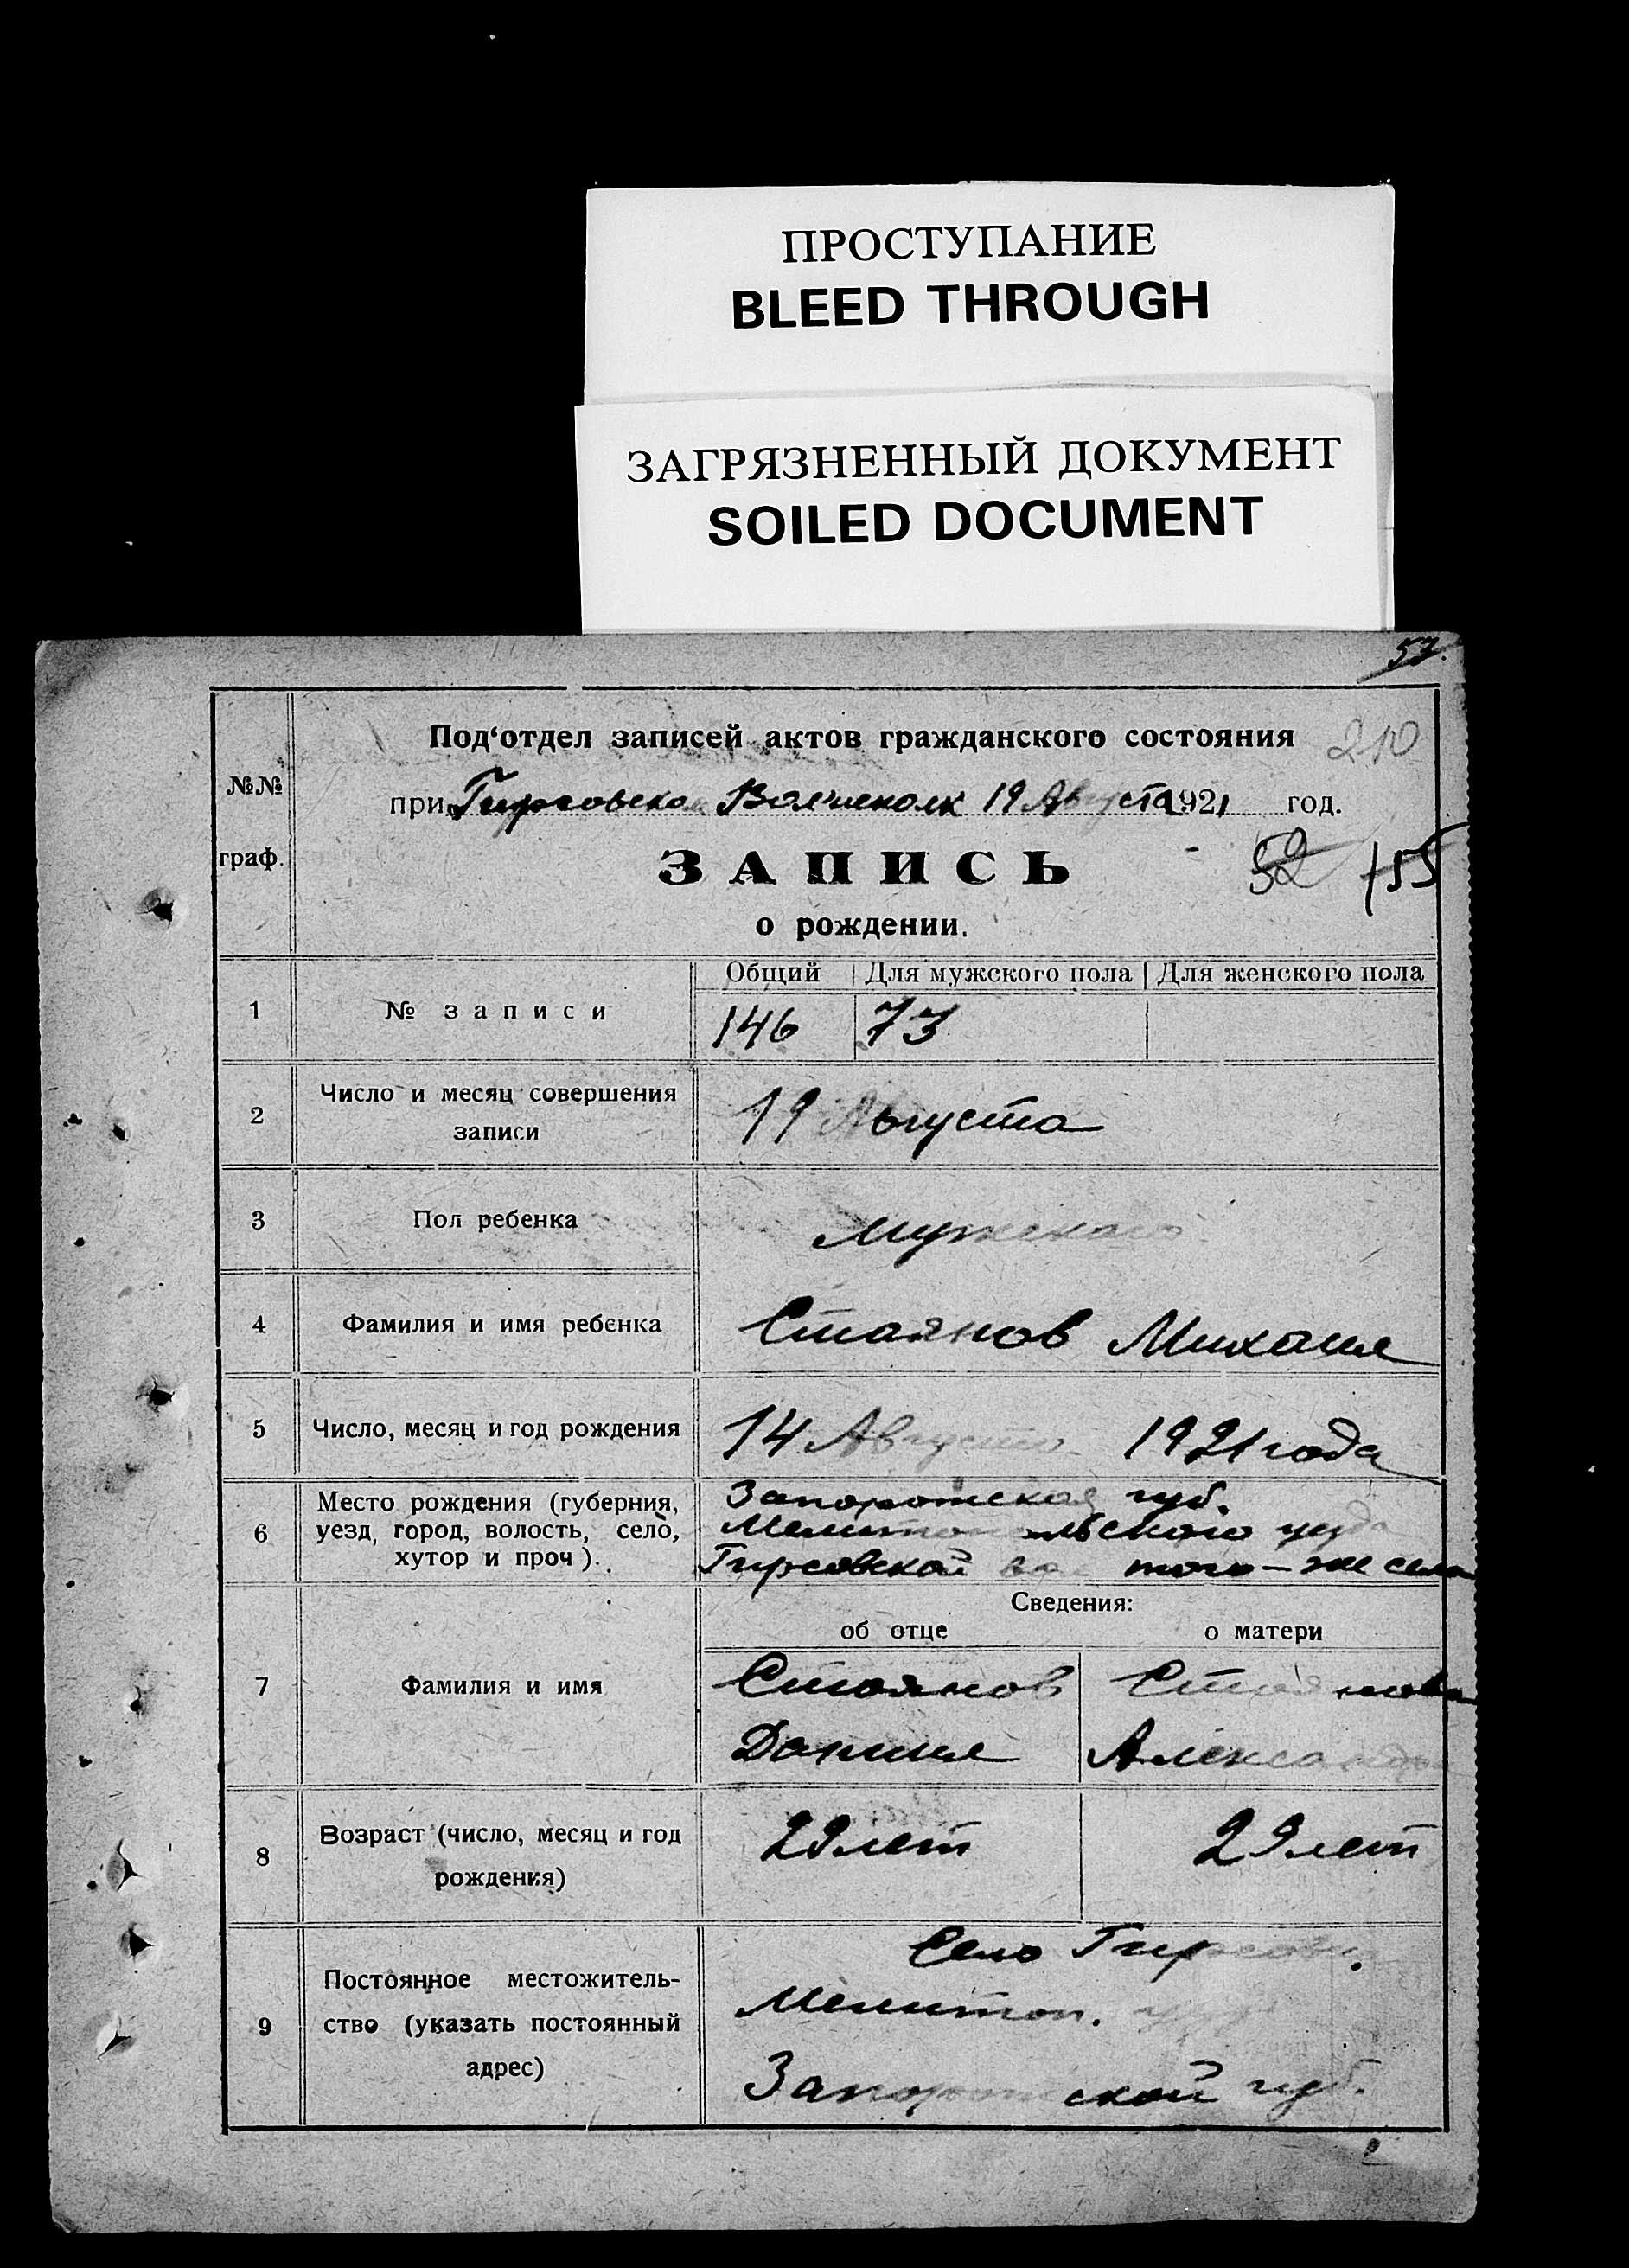 ПРОСТУПАНИЕ
BLEED THROUGH
ЗАГРЯЗНЕННЫЙ ДОКУМЕНТ
SOILED DOCUMENT
57.
Под'отдел записей актов гражданского состояния 210
№№
при Гирсовском Волисполк 19 Августа 1921 год.
граф.
ЗАПИСЬ 52 155
о рождении.
Общий Для мужского пола Для женского пола
1 № записи 146 73
2 Число и месяц совершения
записи 19 Августа
3 Пол ребенка мужского
4 Фамилия и имя ребенка Стоянов Михаил
5 Число, месяц и год рождения 14 Августа 1921 года
Место рождения (губерния, Запорожская губ.
6 уезд, город, волость, село, Мелитопольского уезда
хутор и проч). Гирсовской вол того-же села
Сведения:
об отце о матери
7 Фамилия и имя Стоянов Стоянова
Данил Александра
8 Возраст (число, месяц и год
рождения) 29 лет 29 лет
Село Гирсовк.
9 Постоянное местожитель-
ство (указать постоянный Мелитоп. уезд
адрес) Запорожской губ.